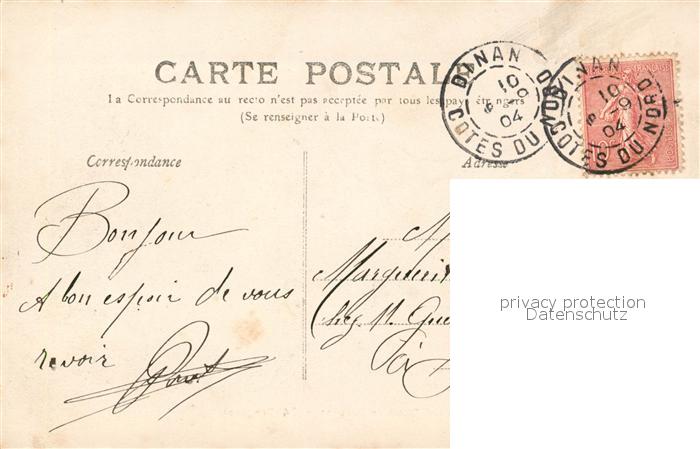 CARTE POSTALE
La Correspondance au recto n'est pas acceptée par tous les pays étrangers
(Se renseigner à la Poste)
DINAN
10
9
04
COTES DU NORD
DINAN
10
9
04
COTES DU NORD
Correspondance
Adresse
Bonjour
A bon espoir de vous
revoir
Marguerit
chez M. Gue
à
privacy protection
Datenschutz